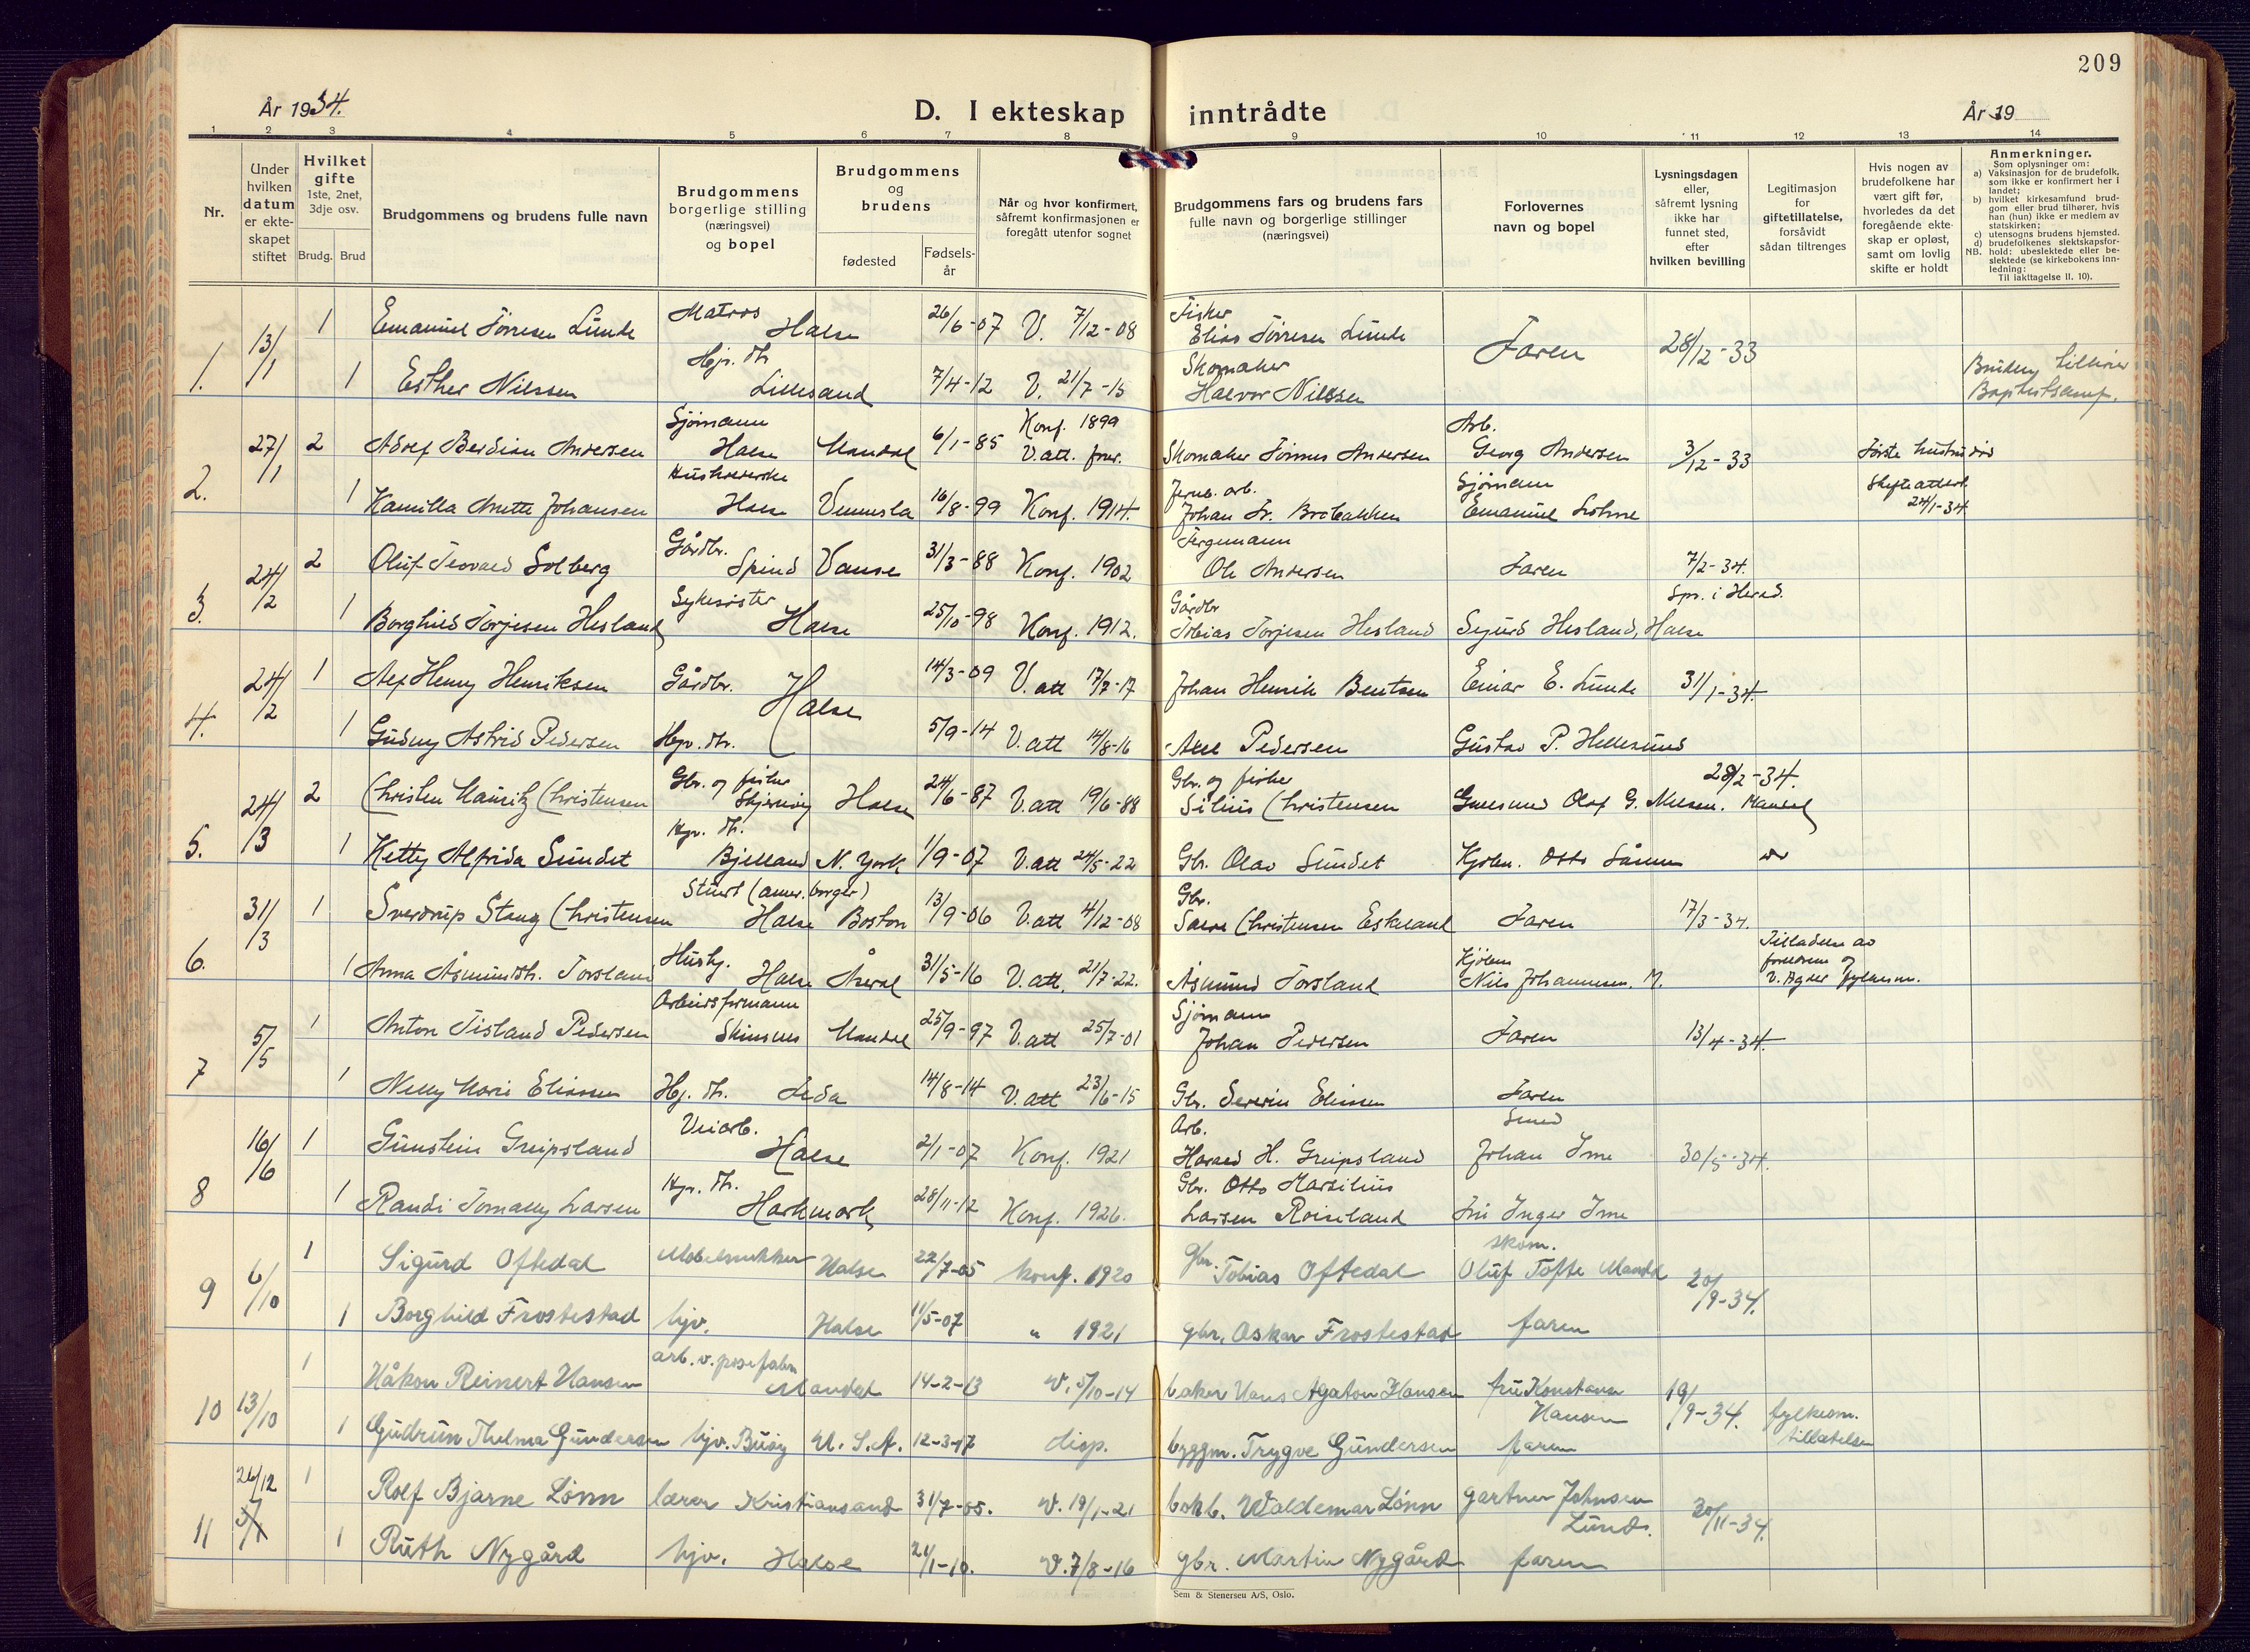 209
År 1934.
D. I ekteskap inntrådte
År 19
1 2 3 4 5 6 7 8 9 10 11 12 13 14
Nr.
Under
hvilken
datum
er ekte-
skapet
stiftet
Hvilket
gifte
1ste, 2net,
3dje osv.
Brudg. Brud
Brudgommens og brudens fulle navn
Brudgommens
borgerlige stilling
(næringsvei)
og bopel
Brudgommens
og
brudens
fødested
Fødsels-
år
Når og hvor konfirmert,
såfremt konfirmasjonen er
foregått utenfor sognet
Brudgommens fars og brudens fars
fulle navn og borgerlige stillinger
(næringsvei)
Forlovernes
navn og bopel
Lysningsdagen
eller,
såfremt lysning
ikke har
funnet sted,
efter
hvilken bevilling
Legitimasjon
for
giftetillatelse,
forsåvidt
sådan tiltrenges
Hvis nogen av
brudefolkene har
vært gift før,
hvorledes da det
foregående ekte-
skap er opløst,
samt om lovlig
skifte er holdt
Anmerkninger.
Som oplysninger om:
a) Vaksinasjon for de brudefolk,
som ikke er konfirmert her i
landet;
b) hvilket kirkesamfund brud-
gom eller brud tilhører, hvis
han (hun) ikke er medlem av
statskirken;
c) utensogns brudens hjemsted.
d) brudefolkenes slektskapsfor-
hold: ubeslektede eller be-
slektede (se kirkebokens inn-
ledning:
NB. Til iakttagelse II. 10).
1. 13/1 1 Emanuel Tørresen Lunde Matros Halse 26/6-07 V. 7/12-08 Fisker Elias Tørresen Lunde Faren 28/12-33
1 Esther Nilssen Hjv. dtr. Lillesand 7/4-12 V. 21/7-15 Skomaker Halvor Nilssen Bruden tilhører Baptistsamf.
2. 27/1 2 Adolf Berdian Andersen Sjømann Halse Mandal 6/1-85 Konf. 1899 V. att. forev. Skomaker Tønnes Andersen Arb. Georg Andersen 3/12-33 Første hustru død
1 Kamilla Anette Johansen Halse Vennesla 16/8-99 Konf. 1914. Jernb. arb. Johan Fr. Brobakken Sjømann Emanuel Lohne Skifteattest 24/1-34
3. 24/2 2 Oluf Teovald Solberg Gårdbr. Spind Vanse 31/3-88 Konf. 1902 Fergemann Ole Andersen Faren 7/2-34. Spr. i Herad.
1 Borghild Torjesen Hesland Sykesøster Halse 25/10-98 Konf. 1912. Gårdbr Tobias Torjesen Hesland Sigurd Hesland, Halse
4. 24/2 1 Alf Henry Henriksen Gårdbr. Halse 14/3-09 V. att 17/7-17 Johan Henrik Bentsen Einar E. Lunde 31/1-34.
1 Gudny Astrid Pedersen Hjv. dtr. 5/9-14 V. att 14/8-16 Axel Pedersen Gustav P. Hellesund
5. 24/3 2 Christen Mauritz Christensen Gbr. og fisker Skjernøy Halse 24/6-87 V. att 19/6-88 Gbr. og fisker Silius Christensen Gullsmed Olaf G. Nilsen. Mandal 28/2-34.
1 Hetty Alfrida Sundet Hjv. dtr. Bjelland N. York 1/9-07 V. att 24/5-22 Gbr. Olav Sundet Kjøbm. Otto Sånum
6. 31/3 1 Sverdrup Stang Christensen Stuert (amer. borger) Halse Boston 13/9-06 V. att 4/12-08 Gbr. Salve Christensen Eskeland Faren 17/3-34.
1 Anna Åsmundsdtr. Torsland Hushj. Halse Åseral 31/5-16 V. att. 21/7-22. Åsmund Torsland Kjøbm Nils Johannesen. M. Tilladelse av foreldrene og V. Agder fylkesm.
7 5/5 1 Anton Tisland Pedersen Arbeidsformann Skinsnes Mandal 25/9-97 V. att 25/7-01 Sjømann Johan Pedersen Faren 13/4-34.
1 Nelly Marie Eliassen Hj. dtr. 14/8-14 V. att 23/6-15 Gbr. Severin Eliassen Faren
8 16/6 1 Gunstein Greipsland Veiarb. Halse 2/1-07 Konf. 1921 Arb. Harald H. Greipsland Smed Johan Ime 30/5-34.
1 Randi Tomally Larsen Hjv. dtr. Harkmark 28/11-12 Konf. 1926. Gbr. Otto Marsilius Larsen Roiseland Fru Inger Ime
9 6/10 1 Sigurd Oftedal Møbelsnekker Halse 22/7-05 konf. 1920 Gbr. Tobias Oftedal skom. Oluf Tofte Mandal 20/9-34.
1 Borghild Frostestad hjv. Halse 11/5-07 " 1921 gbr. Oskar Frostestad faren
10 13/10 1 Håkon Reinert Hansen arb. v. posefabr. Mandal 14-2-13 v. 5/10-14 baker Hans Agaton Hansen fru Konstanse Hansen 19/9-34. fylkesm. tillatelse
1 Gudrun Thelma Gundersen hjv. Busy U. S. A. 12-3-17 disp. byggm. Trygve Gundersen faren
11 26/12 1 Rolf Bjarne Lönn lærer Kristiansand 31/7-05. v. 19/1-21 bokb. Waldemar Lönn gartner Johnsen Lund. 30/11-34.
1 Ruth Nygård hjv. Halse 21/1-10. v. 7/8-16 gbr. Martin Nygård faren
Sem & Stenersen A/S, Oslo.